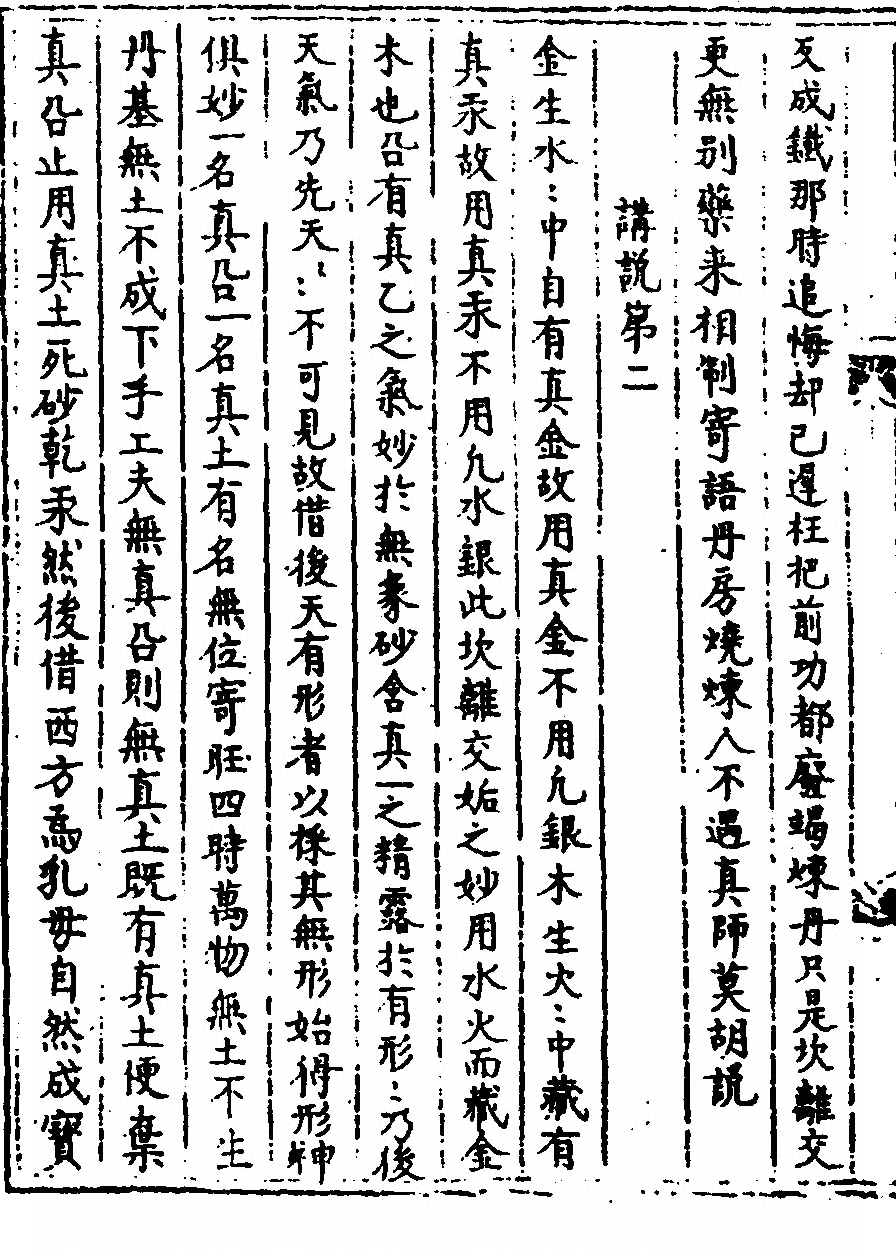 反成鐵那時追悔却已遲枉把前功都廢竭煉丹只是坎離交
更無别藥来相制寄語丹房燒煉人不遇真師莫胡説
講説第二
金生水〻中自有真金故用真金不用凡銀木生火〻中藏有
真汞故用真汞不用凡水銀此坎離交姤之妙用水火而藏金
木也㕣有真乙之氣妙於無象砂含真一之精露於有形〻乃後
天氣乃先天〻〻不可見故借後天有形者以採其無形始得形神
俱妙一名真㕣一名真土有名無位寄旺四時萬物無土不生
丹基無土不成下手工夫無真㕣則無真土既有真土便棄
真㕣止用真土死砂乾汞然後借西方為乳母自然成寳